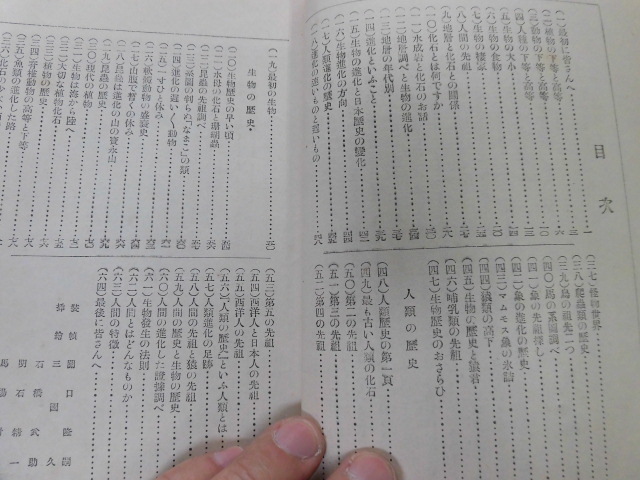 目次
(一)最初に皆さんへ
(二)植物の下等高等
(三)動物の下等高等
(四)人種の下等高等
(五)生物の大小
(六)生物の食物
(七)生物の棲家
(八)人間の先祖
(九)地層と化石との関係
(一〇)化石とは何ですか
(一一)水成岩と化石のお話
(一二)地層調べと生物の進化
(一三)地層の年代別
(一四)進化といふこと
(一五)生物の進化と日本歴史の變化
(一六)生物進化の方向
(一七)人類進化の歴史
(一八)進化の速いものと遅いもの
(一九)最初の生物
生物の歴史
(二〇)生物歴史の早い頃
(二一)水母の化石と珊瑚蟲
(二二)昆蟲の先祖調べ
(二四)進化の遅い動物
(二五)一すひと休み
(二六)軟頸動物の盛衰史
(二七)山腹で暫くの休み
(二八)昆蟲は進化の山の寶永山
(二九)昆蟲の歴史
(三〇)現代の植物
(三一)生物は海から陸へ
(三二)大切な植物化石
(三三)植物の歴史
(三四)脊椎動物の高等と下等
(三五)魚類の進化した路
(三七)怪物世界
(三八)爬蟲類の歴史
(三九)鳥の祖先二つ
(四〇)馬の系圖調べ
(四一)象の先祖探し
(四二)象の進化の歴史
(四三)マムモス象の氷詰
(四四)猿類の高下
(四五)生物の歴史と猿君
(四六)哺乳類の先祖
(四七)生物歴史のおさらひ
人類の歴史
(四八)人類歴史の第一頁
(四九)最も古い人類の化石
(五〇)第二の先祖
(五一)第三の先祖
(五二)第四の先祖
(五三)第五の先祖
(五四)西洋人と日本人の先祖
(五五)西洋人の先祖
(五六)「人類の歴史」といふ人類とは
(五七)人類進化の足跡
(五八)人間の先祖と猿の先祖
(五九)人間の歴史と生物の歴史
(六〇)人間の進化した證據調べ
(六一)生物發生の法則
(六二)人間とはどんなものか
(六三)人間の特徴
(六四)最後に皆さんへ
装幀 關口隆嗣
挿繪 三國久
石橋武助